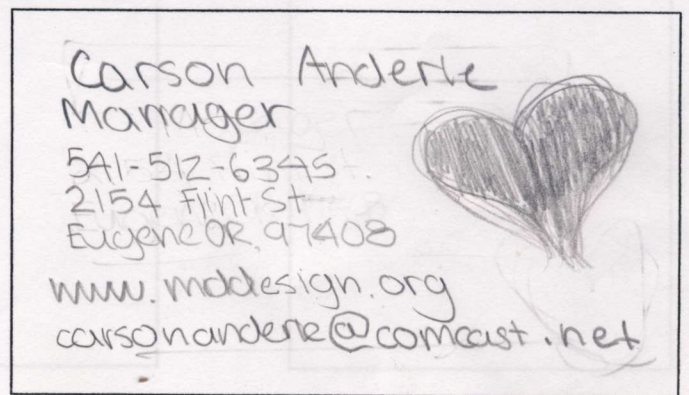 Carson Anderle
Manager
541-512-6345
2154 Flint St
Eugene OR, 97408
www.mddesign.org
carsonanderle@comcast.net